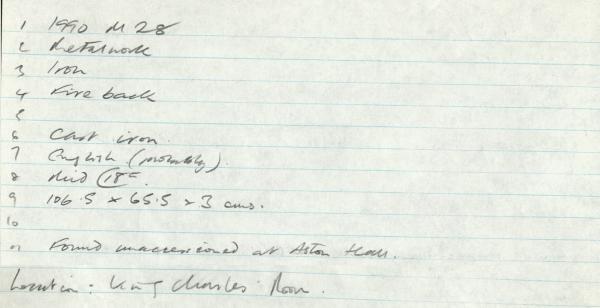 1 1990 M 28
2 Metalwork
3 Iron
4 Fire back
5
6 Cast iron.
7 English (probably).
8 Mid 18c.
9 106.5 x 65.5 x 3 cms.
10
11 Found unaccessioned at Aston Hall.
Location: King Charles' Room.